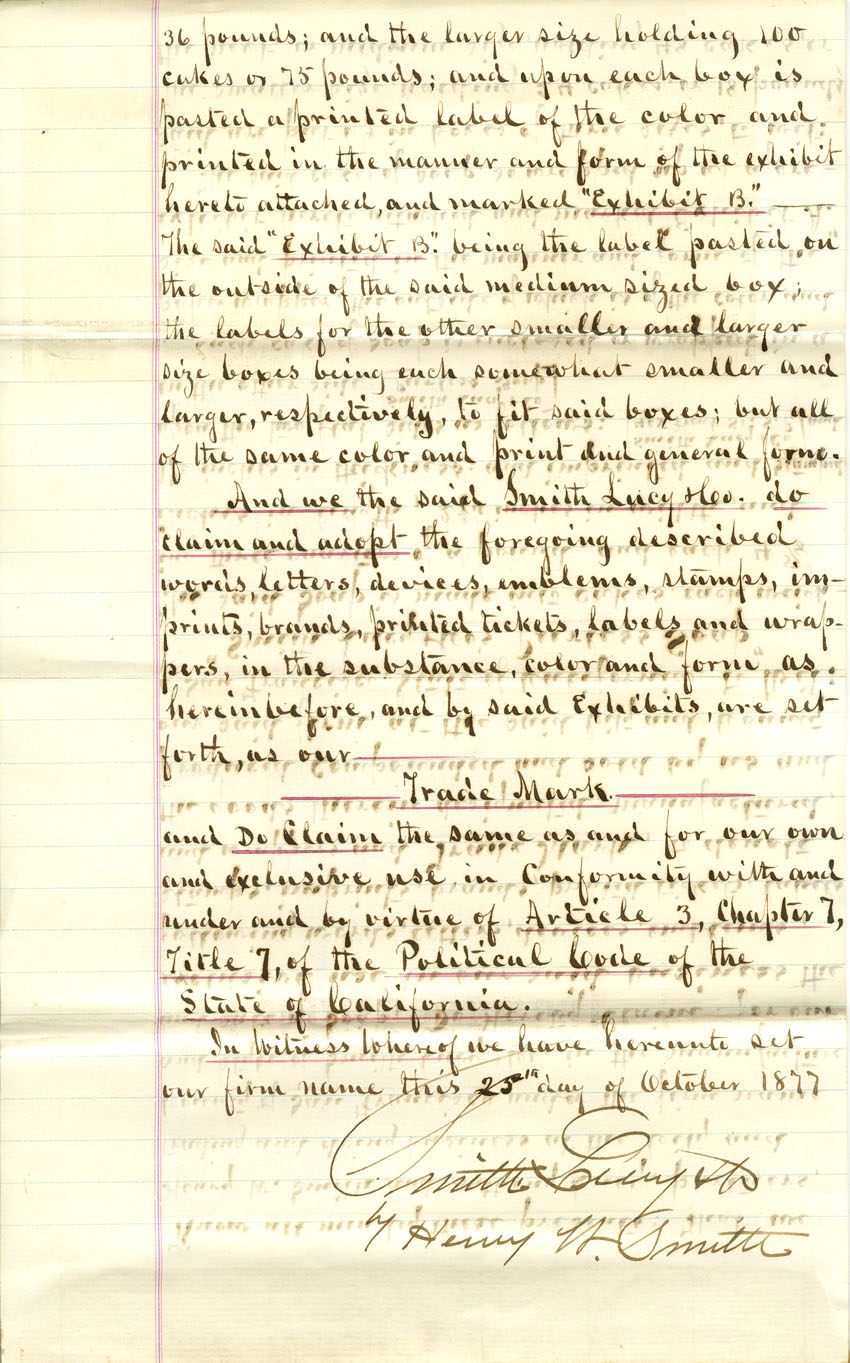 36 pounds; and the larger size holding 100
cakes or 75 pounds; and upon each box is
pasted a printed label of the color and
printed in the manner and form of the exhibit
hereto attached, and marked "Exhibit B."
The said "Exhibit B". being the label pasted on
the outside of the said medium sized box;
the labels for the other smaller and larger
size boxes being each somewhat smaller and
larger, respectively, to fit said boxes; but all
of the same color and print and general form.
And we the said Smith Lucy & Co. do
claim and adopt the foregoing described
words, letters, devices, emblems, stamps, im-
prints, brands, printed tickets, labels and wrap-
pers, in the substance, color and form as
hereinbefore, and by said Exhibits, are set
forth, as our
Trade Mark.
and Do Claim the same as and for our own
and exclusive use in Conformity with and
under and by virtue of Article 3, Chapter 7,
Title 7, of the Political Code of the
State of California.
In Witness Whereof we have hereunto set
our firm name this 25th day of October 1877
Smith Lucy & Co
by Henry W. Smith